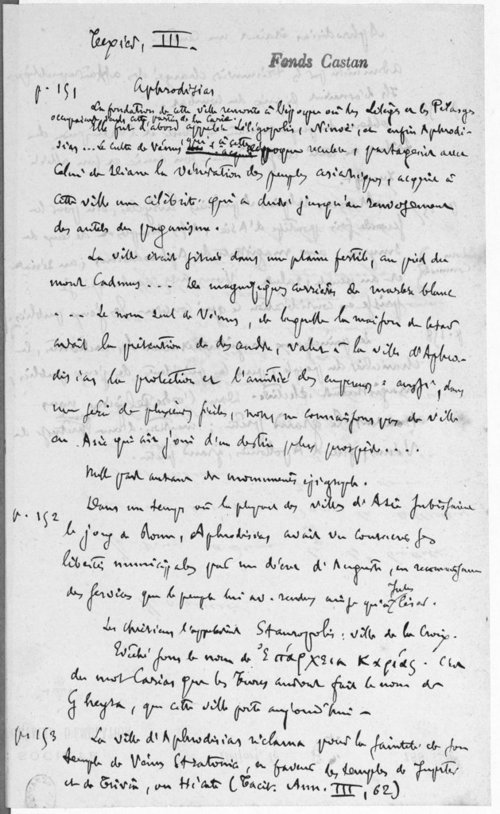 Texier, III.
Fonds Castan
p. 151 Aphrodisias
La fondation de cette ville remonte à l'époque où les Lélèges et les Pélasges
occupaient seuls cette partie de la Carie.
Elle fut d'abord appelée Lélégopolis, Ninoë, et enfin Aphrodi-
sias... Le culte de Vénus qui, à cette époque reculée, partageait avec
celui de Diane la vénération des peuples asiatiques, acquit à
cette ville une célébrité qui a duré jusqu'au renversement
des autels du paganisme.
La ville était située dans une plaine fertile, au pied du
mont Cadmus... Les magnifiques carrières de marbre blanc
.... Le nom seul de Vénus, de laquelle la maison de César
avait la prétention de descendre, valut à la ville d'Aphro-
disias la protection et l'amitié des empereurs: aussi, dans
une série de plusieurs siècles, nous ne connaissons pas de ville
en Asie qui ait joui d'un destin plus prospère....
Nulle part autant de monuments épigraph.
p. 152 Dans un temps où la plupart des villes d'Asie subissaient
le joug de Rome, Aphrodisias avait vu consacrer ses
libertés municipales par un décret d'Auguste, en reconnaissance
des services que le peuple lui av. rendus ainsi qu'à Jules César.
Les chrétiens l'appelèrent Stauropolis: ville de la Croix.
Evêché sous le nom de Ἐπάρχεια Καρίας. C'est
du mot Carias que les Turcs auront fait le nom de
Gheyra, que cette ville porte aujourd'hui –
p. 153 La ville d'Aphrodisias réclama pour la sainteté de son
temple de Vénus Stratonice, en faveur des temples de Jupiter
et de Trivia, ou Hécate (Tacit. Ann. III, 62)